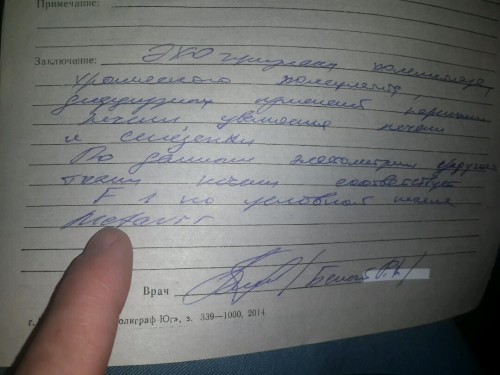 Примечание:
Заключение: ЭХО признаки
хронического
диффузных изменений паренхимы
печени увеличения печени
и селезенки
По данным эластометрии
ткани печени соответствует
F 1 по условной шкале
Metavir
Врач
г. олиграф-Юг», з. 339—1000, 2014